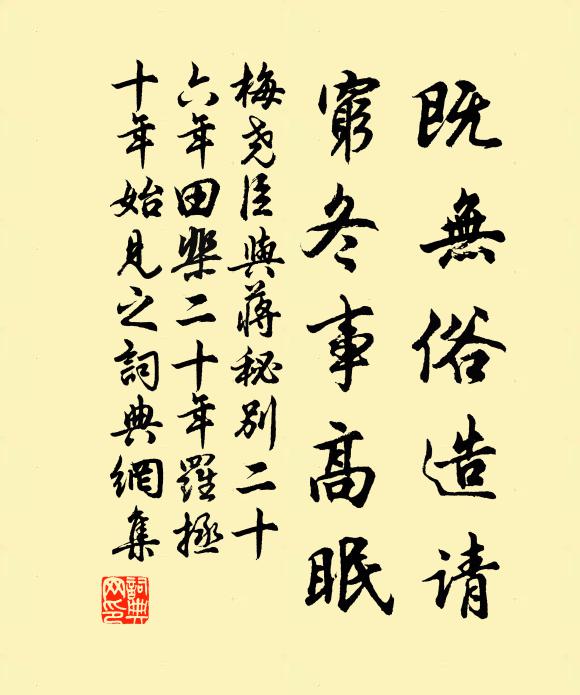 既無俗造請
窮冬事高眠
梅堯臣與蔣秘別二十
六年田棐二十年羅拯
十年始見之詞典網集
詞典
网印